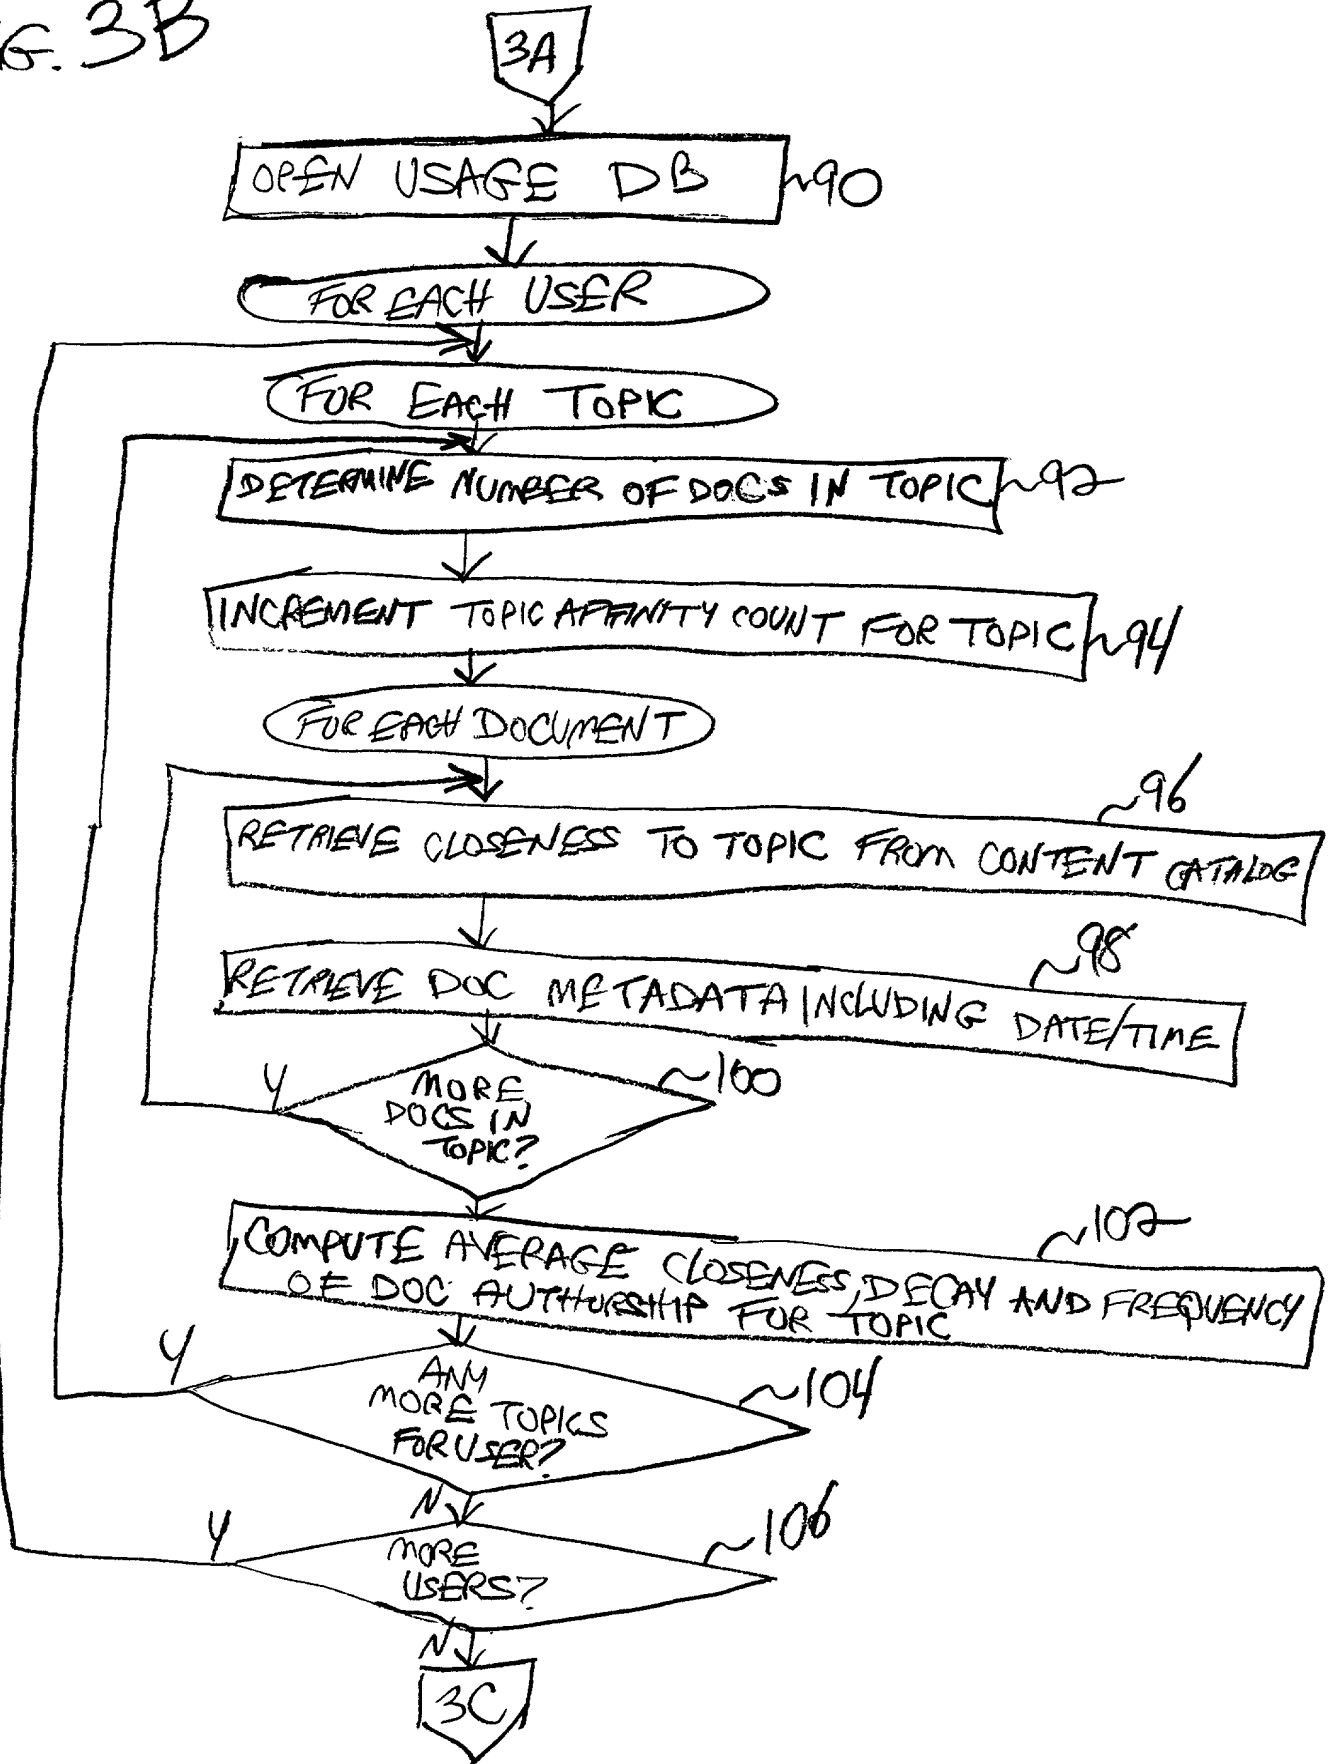 G. 3B
3A
OPEN USAGE DB
90
FOR EACH USER
FOR EACH TOPIC
DETERMINE NUMBER OF DOCS IN TOPIC
92
INCREMENT TOPIC AFFINITY COUNT FOR TOPIC
94
FOR EACH DOCUMENT
96
RETRIEVE CLOSENESS TO TOPIC FROM CONTENT CATALOG
98
RETRIEVE DOC METADATA INCLUDING DATE/TIME
Y
100
MORE
DOCS IN
TOPIC?
102
COMPUTE AVERAGE CLOSENESS, DECAY AND FREQUENCY
OF DOC AUTHORSHIP FOR TOPIC
Y
104
ANY
MORE TOPICS
FOR USER?
N
Y
106
MORE
USERS?
N
3C